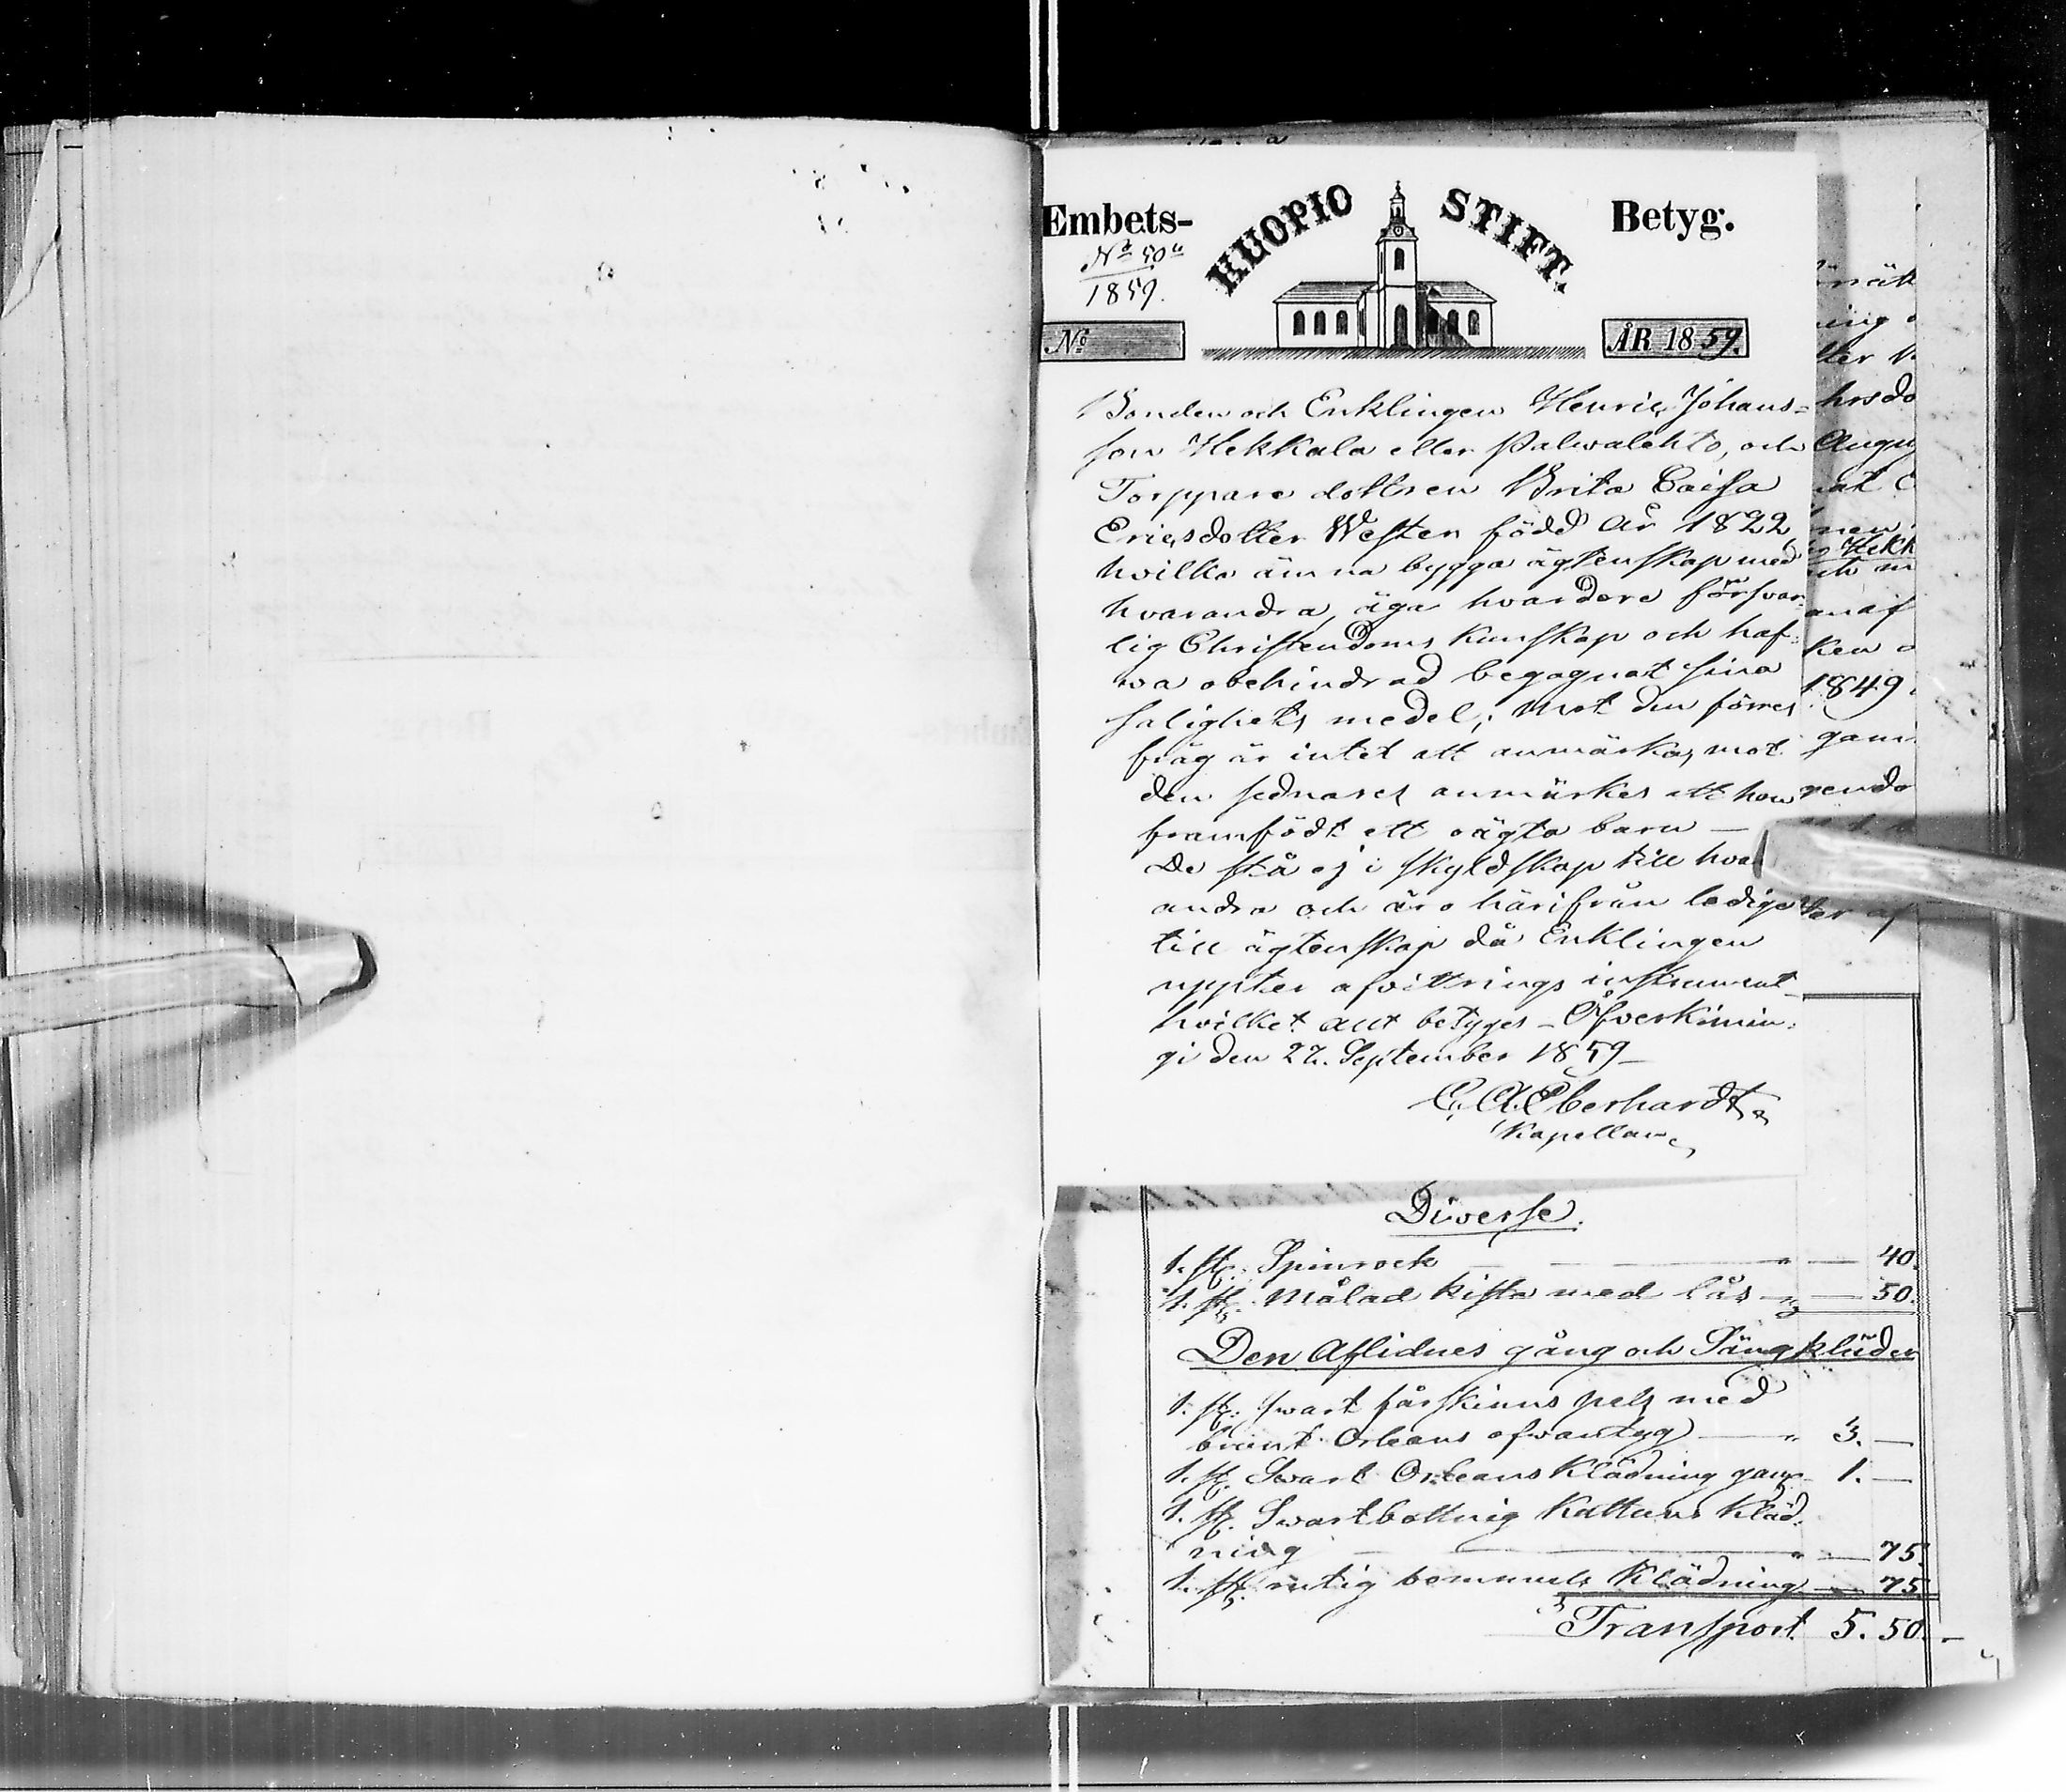 Embets- KUOPIO STIFT. Betyg.
No 50
1859.
No ÅR 1859.
Bonden och Enklingen Henric Johans=
son Hekkala eller Palwalehto, och
Torppare dottren Brita Caisa
Ericsdotter Westen född År 1822
hvilka ämna bygga ägtenskap med
hvarandra, äga hvardera försvar-
lig Christendoms kunskap och haf-
va obehindrad begagnat sina
salighets medel; Mot den förres
fräg är intet att anmärka, mot
den sednares anmärkes att hon
framfödt ett oägta barn —
De stå ej i skyldskap till hvar
andra och äro härifrån lediga
till ägtenskap då Enklingen
uppter afvittrings instrument
hvilket allt betyges — Öfverkimin-
gi den 22. September 1859 —
C. A. Eberhardt
Kapellan
hrsdo
Augu
Hekk
ken
1849
Diverse.
1. st. Spinrock — " — 40.
1. st. Målad kista med lås — " — 50.
Den Aflidnes gång och Sängkläder
1. st. swart fårskinns pels med
brunt Orleans ofwantyg — " 3. —
1. st. Swart Orleans Klädning 1. —
1. st. Swartbottnig Kattuns Kläd-
ning — " — 75.
1. st. rutig bommuls Klädning — 75
Transport 5. 50.